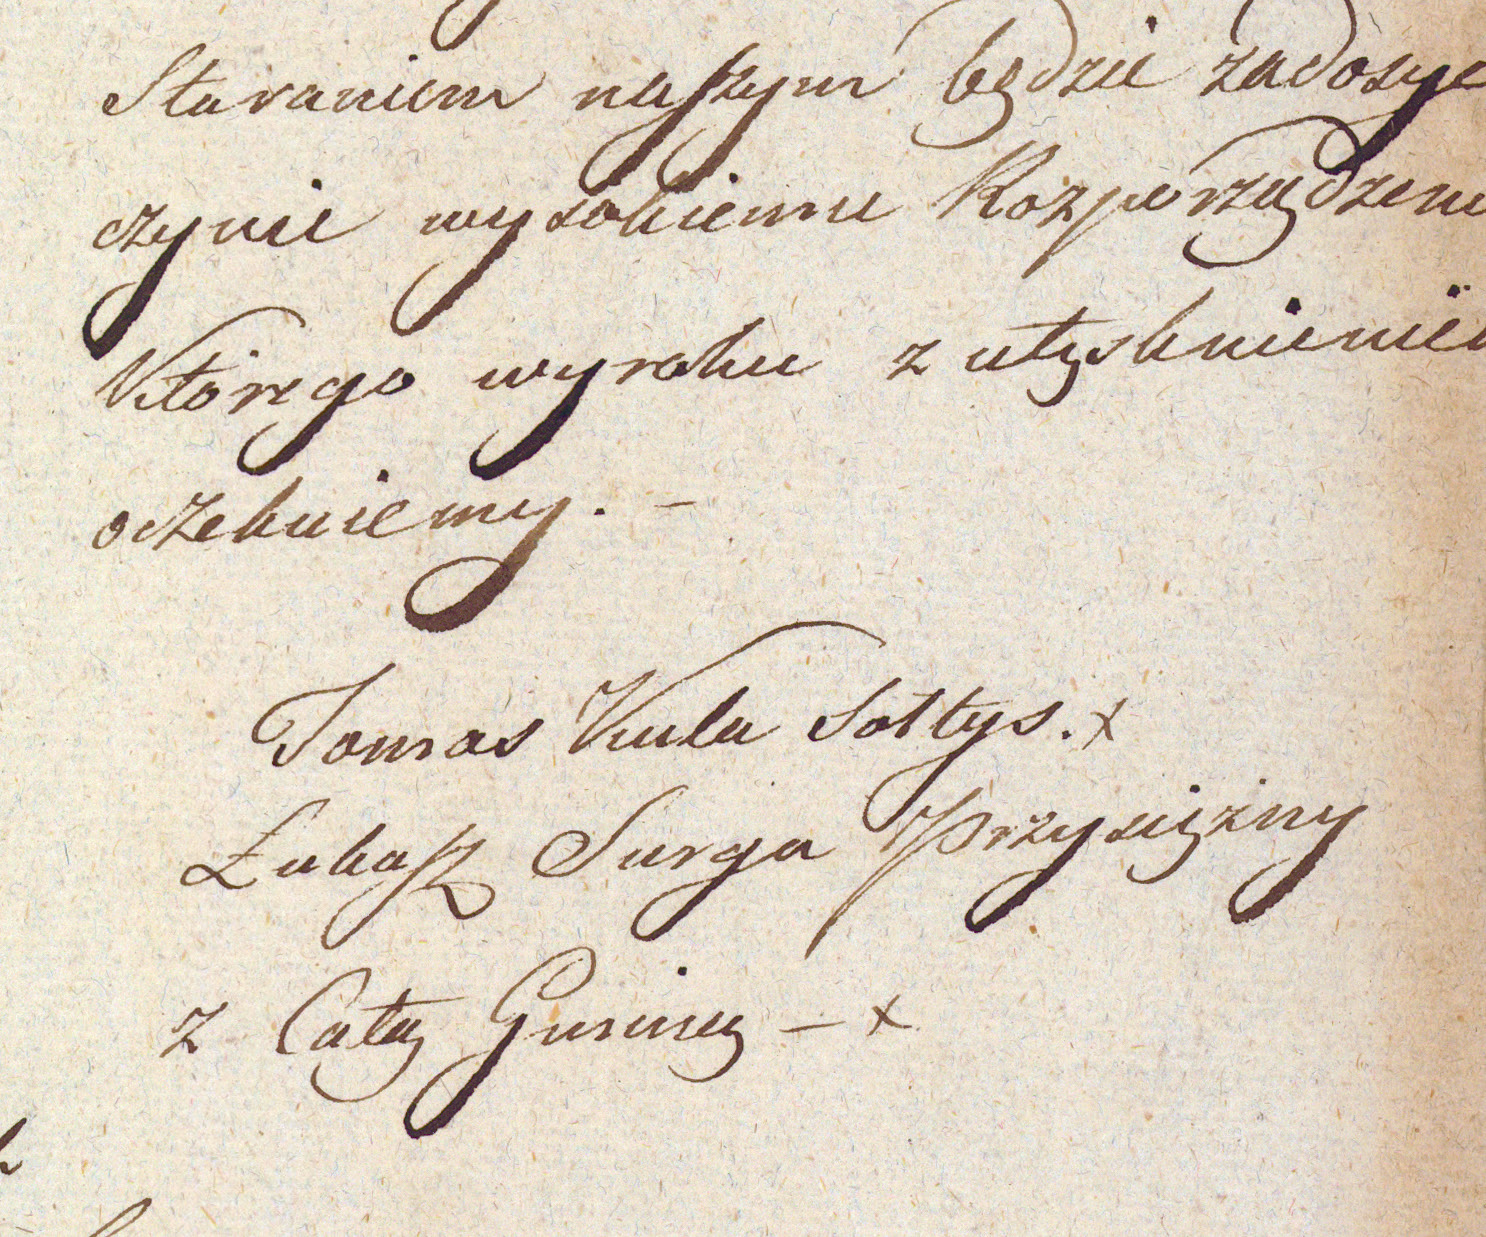 Staraniem naszym będzie zadosyć
czynić wysokiemu Rozporządzeni
Którego wyroku z utęsknienie
oczekuiemy. —
Tomas Kula Sołtys. x
Łukasz Surga Przysiężny
z Całą Gminą — x